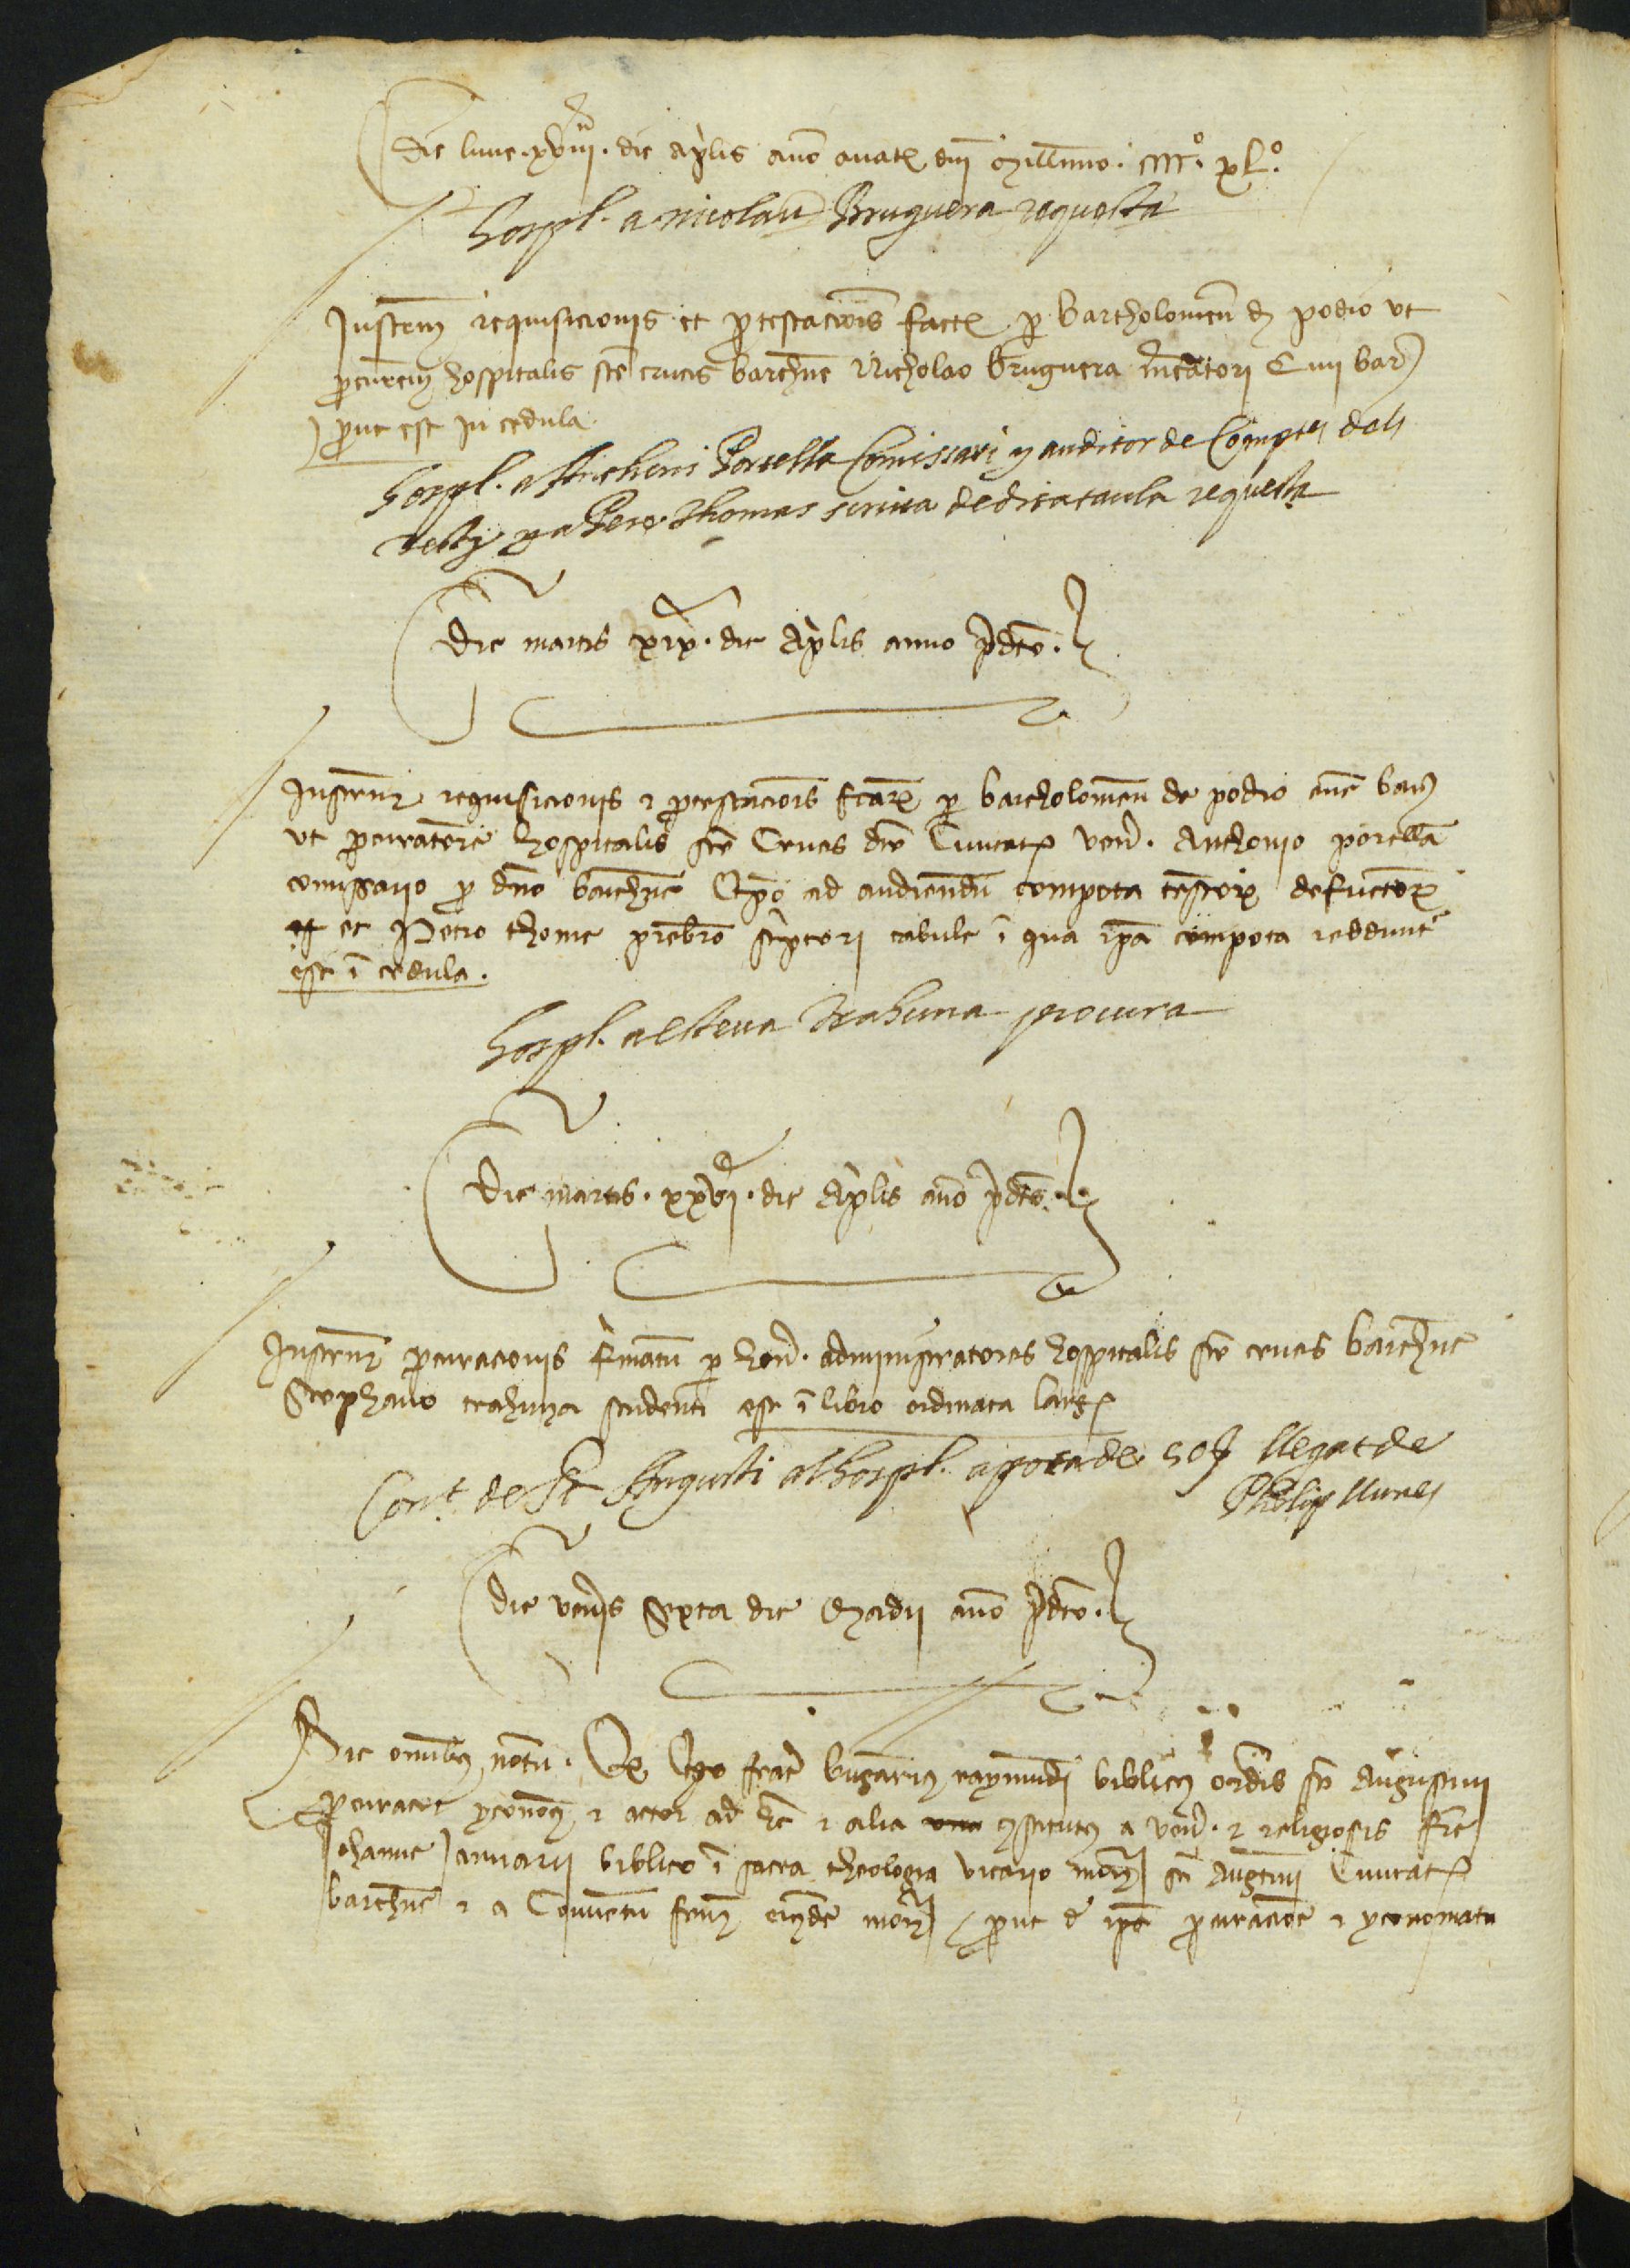 Die lune .xviii. die aplis año anatę dni millimo. cccc°. xl°.
hospl. a nicolau Bruguera requesta
Instrm requisicionis et ptestacionis facte p bartholomeu de podio ut
pcuratem hospitalis ste crucis barchne Nicholao bruguera mcatori Civi bar
put est in cedula
hospl. a Anthoni Porcella Comissari y auditor de Comptes dels
test y a Pere Thomas scriva de dita taula requesta
Die martis xix. die Aplis anno pdco.
Instrm requisicionis et ptestacionis fcare p bartholomeu de podio cive bar
ut pcuratore hospitalis ste Crucis dce Civitatę vend. Anthonio porcella
comissario p dno barchne Epo ad audiendu compota testore defuctorę
et Petro thome prebro scptori tabule i qua ipa compota reddunt
est i cedula.
hospl. a esteva trahuna procura
Die martis. xxvi. die Aplis año pdco.
Instrm pcuracionis firmatu p hon. administratores hospitalis ste crucis barchne
Stephano trahuna studenti est i libro ordinata large
Cont de St Augusti al hospl. apoca de 50 ll llegat de
Philip
Die veneris sexta die Madii año pdco.
Sit omnibus notu. Qe Ego frater raymundi biblicus ordis sti Augustini
pcurator yconomus et actor ad hec et alia constitutus a vend. et religiosis fre
Johanne Januarii biblico i sacra theologia vicario mon sti Augtini Civitatę
barchne et a Conventu frm eiusde mon put de ipa pcuracione et yconomatu